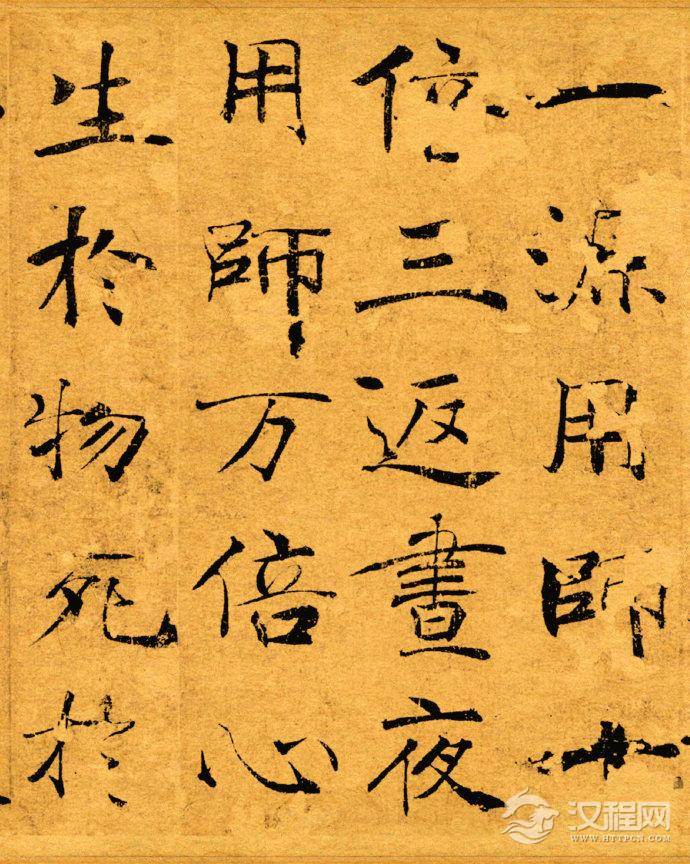 一源用師十
倍三返晝夜
用師万倍心
生於物死於
汉程网
WWW.HTTPCN.COM